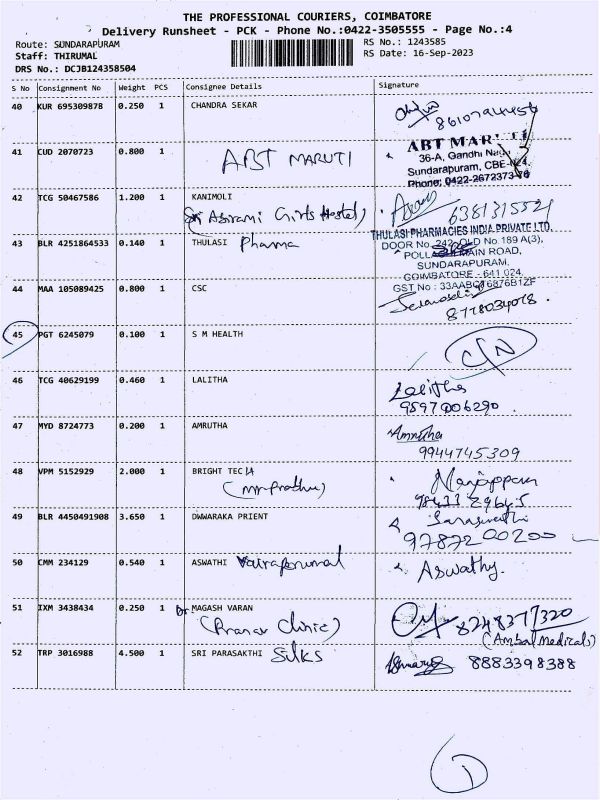 THE PROFESSIONAL COURIERS, COIMBATORE
Delivery Runsheet - PCK - Phone No.:0422-3505555 - Page No.:4
Route: SUNDARAPURAM
RS No.: 1243585
Staff: THIRUMAL
RS Date: 16-Sep-2023
DRS No.: DCJB124358504
S No Consignment No Weight PCS Consignee Details Signature
40 KUR 695309878 0.250 1 CHANDRA SEKAR
41 CUD 2070723 0.800 1 ABT MARUTI
ABT MARUTI
36-A, Gandhi Nagar
Sundarapuram, CBE-
Phone: 0422-2672373-76
42 TCG 50467586 1.200 1 KANIMOLI
(Sri Abirami Girls Hostel)
6381315521
43 BLR 4251864533 0.140 1 THULASI Pharma
THULASI PHARMACIES INDIA PRIVATE LTD.
DOOR No. 242, OLD No.189 A(3),
POLLACHI MAIN ROAD,
SUNDARAPURAM,
COIMBATORE - 641 024.
GST No : 33AABCT6876B1ZF
44 MAA 105089425 0.800 1 CSC
8778034078.
45 PGT 6245079 0.100 1 S M HEALTH
C/N
46 TCG 40629199 0.460 1 LALITHA
Lalitha
9597006290.
47 MYD 8724773 0.200 1 AMRUTHA
Amrutha
9944745309
48 VPM 5152929 2.000 1 BRIGHT TECH
(Mr Prathu)
98433 29645
49 BLR 4450491908 3.650 1 DWWARAKA PRIENT
Saraswathi
9787200200
50 CMM 234129 0.540 1 ASWATHI Vairaperumal
Aswathy.
51 IXM 3438434 0.250 1 Dr. MAGASH VARAN
(Pranav Clinic)
8248377320
(Ambal Medicals)
52 TRP 3016988 4.500 1 SRI PARASAKTHI Silks
8883398388
1